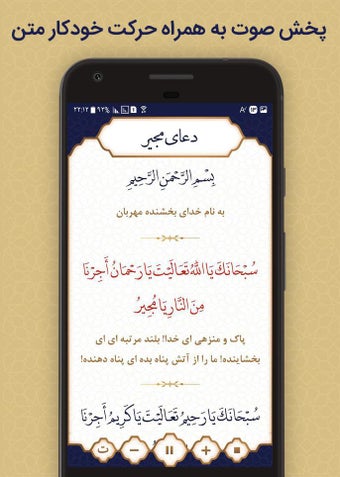 پخش صوت به همراه حرکت خودکار متن
۲۲:۱۲ ۹۳%
دعای مجیر
بِسْمِ الرَّحْمَنِ الرَّحِيمِ
به نام خدای بخشنده مهربان
سُبْحَانَكَ يَا اللَّهُ تَعَالَيْتَ يَا رَحْمَانُ أَجِرْنَا
مِنَ النَّارِ يَا مُجِيرُ
پاک و منزهی ای خدا! بلند مرتبه ای ای
بخشاینده! ما را از آتش پناه بده ای پناه دهنده!
سُبْحَانَكَ يَا رَحِيمُ تَعَالَيْتَ يَا كَرِيمُ أَجِرْنَا
ت